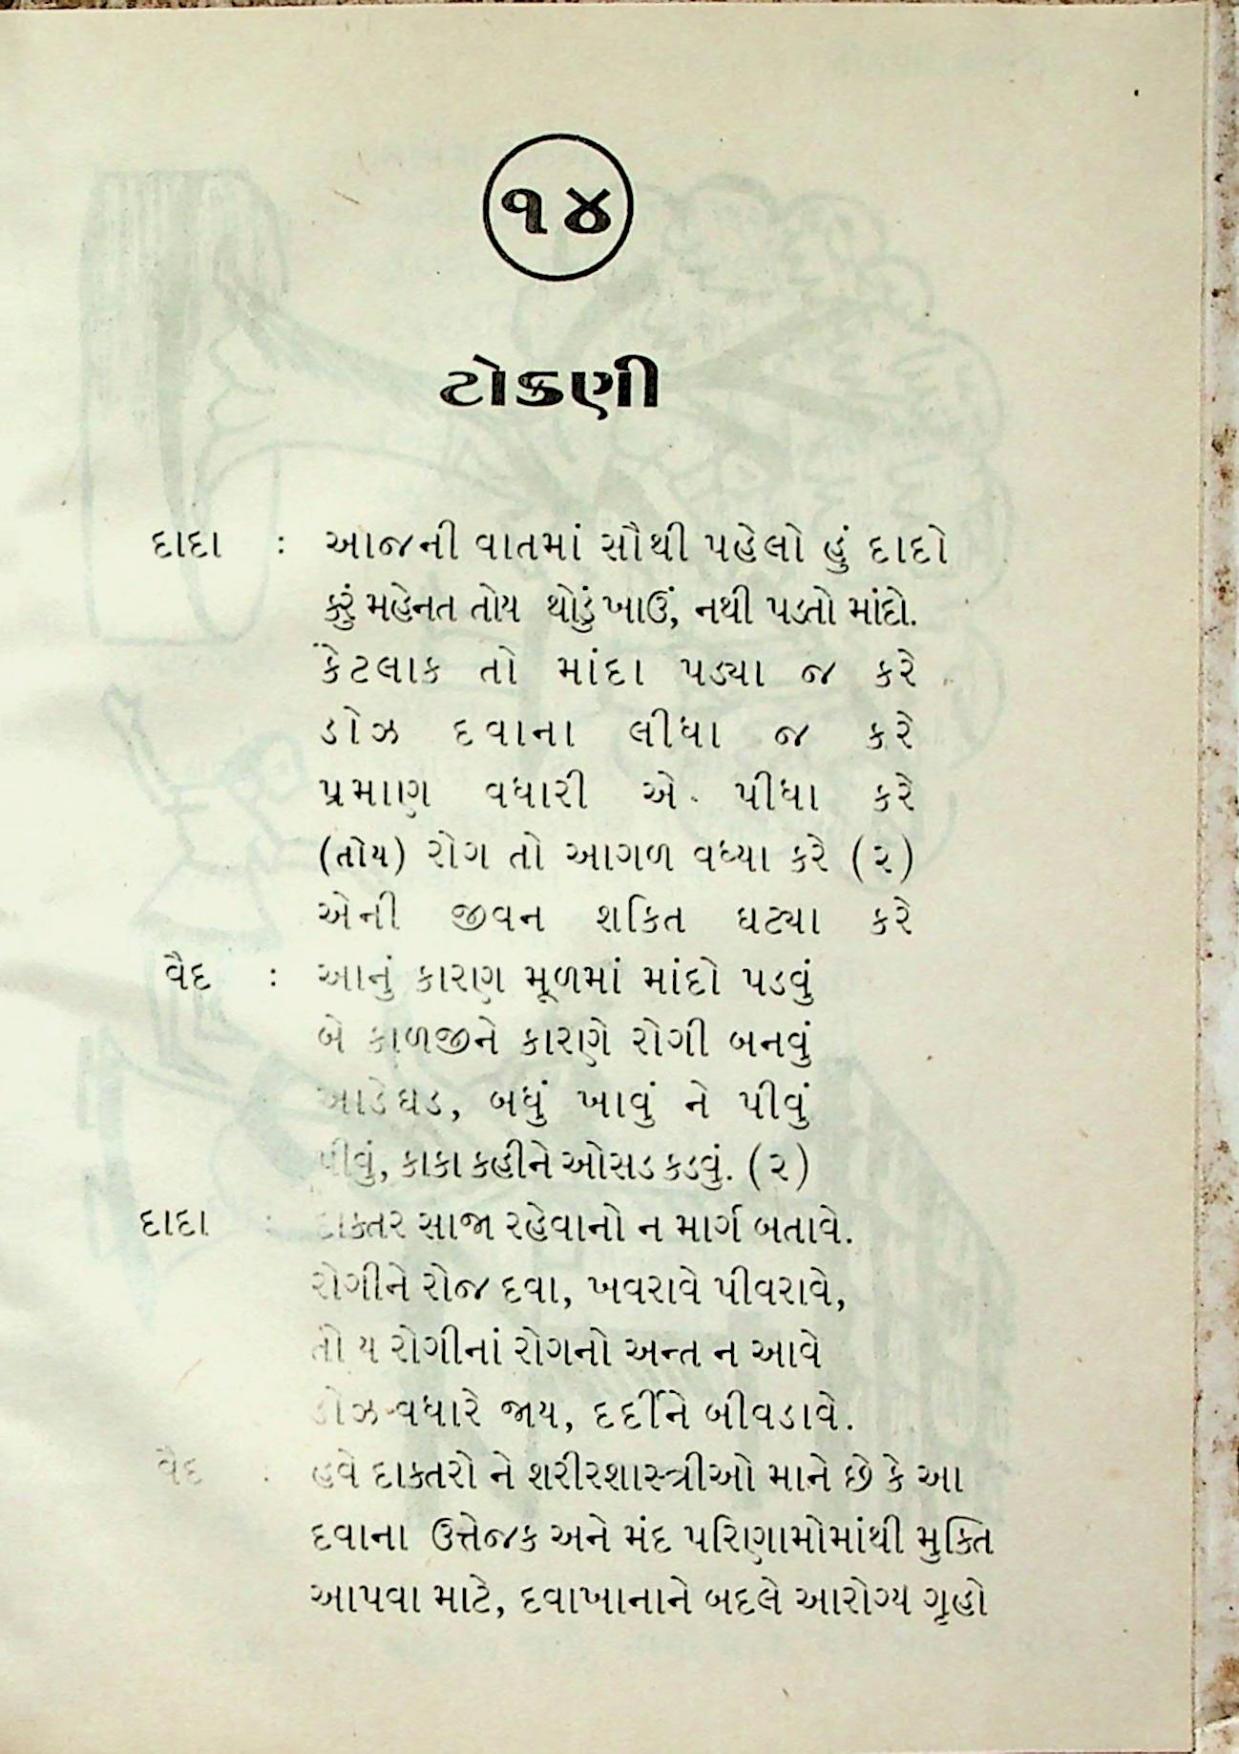 ૧૪
ટોકણી
દાદા : આજની વાતમાં સૌથી પહેલો હું દાદો
કરું મહેનત તોય થોડું ખાઉં, નથી પડતો માંદો.
કેટલાક તો માંદા પડ્યા જ કરે
ડોઝ દવાના લીધા જ કરે
પ્રમાણ વધારી એ પીધા કરે
(તોય) રોગ તો આગળ વધ્યા કરે (૨)
એની જીવન શકિત ઘટ્યા કરે
વૈદ : આનું કારણ મૂળમાં માંદો પડવું
બે કાળજીને કારણે રોગી બનવું
આડેઘડ, બધું ખાવું ને પીવું
પીવું, કાકા કહીને ઓસડ કડવું. (૨)
દાદા : દાક્તર સાજા રહેવાનો ન માર્ગ બતાવે.
રોગીને રોજ દવા, ખવરાવે પીવરાવે,
તો ય રોગીનાં રોગનો અન્ત ન આવે
ડોઝ-વધારે જાય, દર્દીને બીવડાવે.
વૈદ : હવે દાક્તરો ને શરીરશાસ્ત્રીઓ માને છે કે આ
દવાના ઉત્તેજક અને મંદ પરિણામોમાંથી મુક્તિ
આપવા માટે, દવાખાનાને બદલે આરોગ્ય ગૃહો